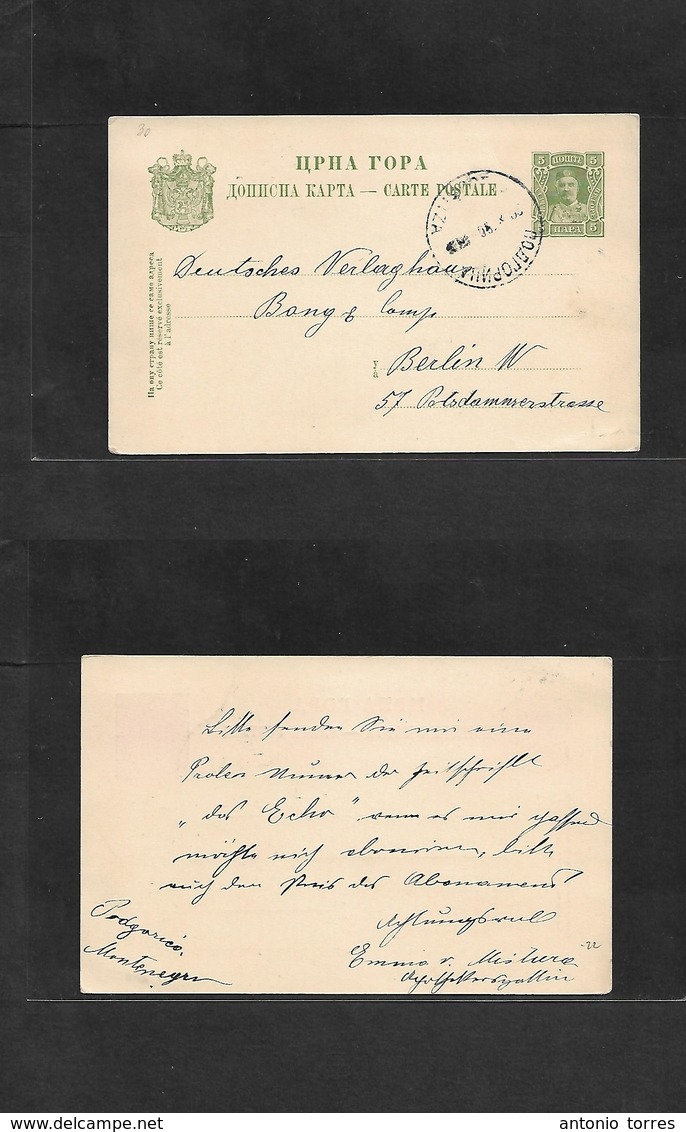 30
ЦРНА ГОРА
ДОПИСНА КАРТА — CARTE POSTALE
5 ПОШТЕ 5
ПАРА 5
ПОДГОРИЦА
На ову страну пише се само адреса
Ce côté est réservé exclusivement
à l'adresse
Deutsches Verlaghaus
Bong & Comp
Berlin W
57 Potsdammerstrasse
Bitte senden Sie mir eine
Probes Numer der Zeitschrift
„das Echo" wenn es mir passend
möchte mich aboniren, bitte
auch den Preis des Abonament
Achtungsvoll
Emma v.
Apothekersgattin
Podgorica
Montenegro
-22
antonio torres